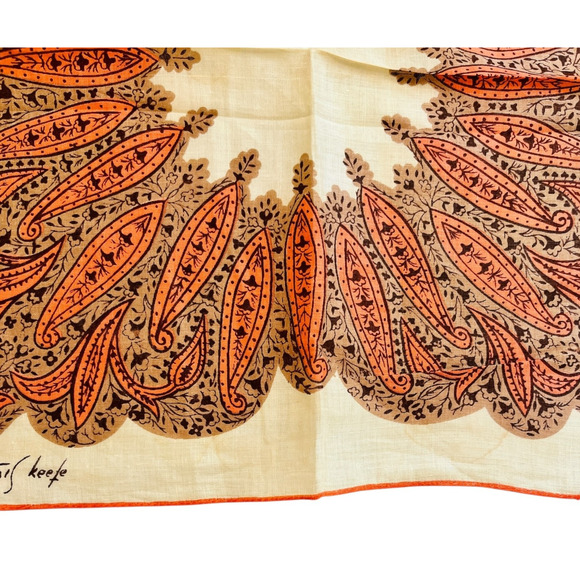 is keefe